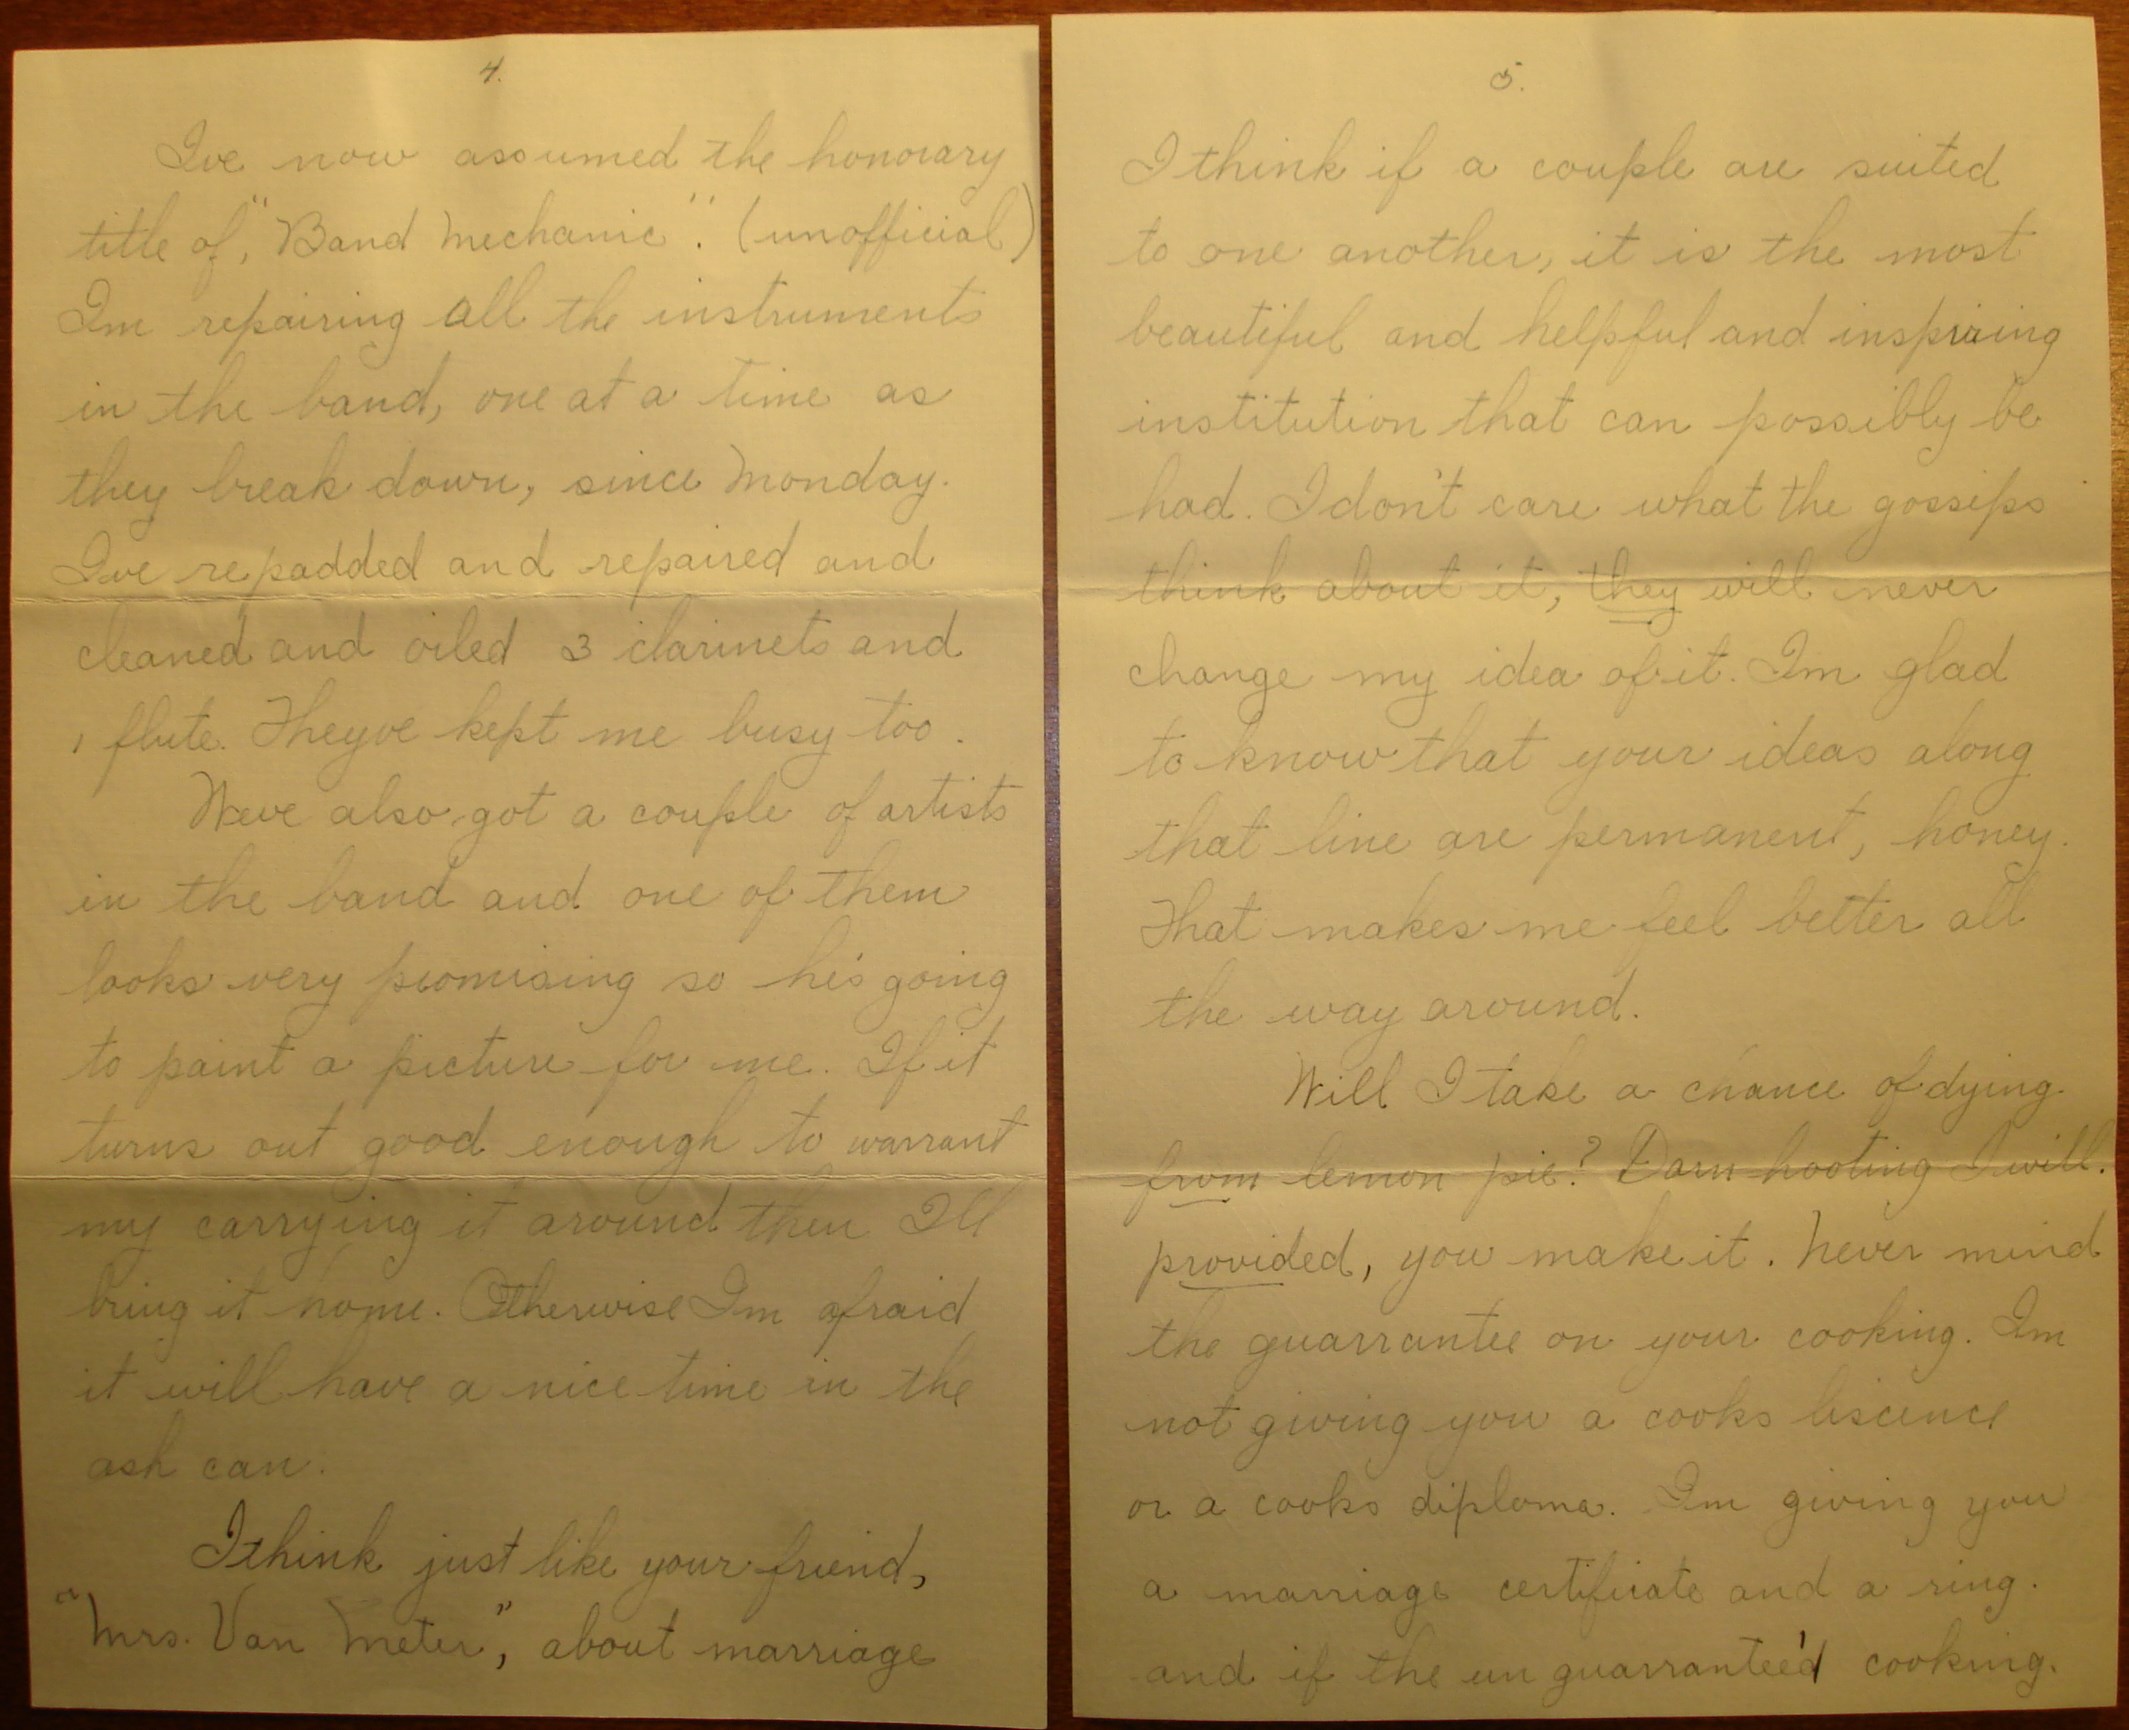 4.
Ive now assumed the honorary
title of, "Band Mechanic". (unofficial)
Im repairing all the instruments
in the band, one at a time as
they break down, since Monday.
Ive repadded and repaired and
cleaned and oiled 3 clarinets and
1 flute. Theyve kept me busy too.
Weve also got a couple of artists
in the band and one of them
looks very promising so he's going
to paint a picture for me. If it
turns out good enough to warrant
my carrying it around then Ill
bring it home. Otherwise Im afraid
it will have a nice time in the
ash can.
I think just like your friend,
"Mrs. Van Meter", about marriage
5.
I think if a couple are suited
to one another, it is the most
beautiful and helpful and inspiring
institution that can possibly be
had. I don't care what the gossips
think about it, they will never
change my idea of it. Im glad
to know that your ideas along
that line are permanent, honey.
That makes me feel better all
the way around.
Will I take a chance of dying
from lemon pie? Darn hooting I will.
provided, you make it. Never mind
the guarrantee on your cooking. Im
not giving you a cooks liscence
or a cooks diploma. Im giving you
a marriage certificate and a ring.
and if the un guarrantee'd cooking.